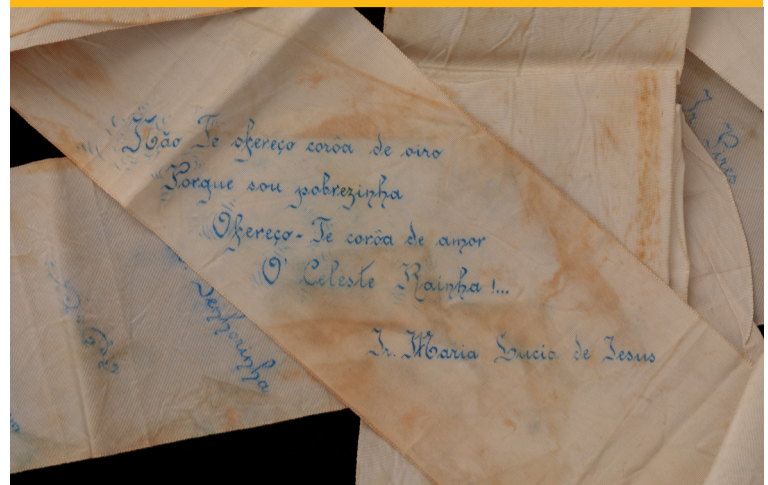 Não Te ofereço corôa de oiro
Porque sou pobrezinha
Ofereço-Te corôa de amor
O' Celeste Rainha!...
Ir. Maria Lucia de Jesus
Senhorinha
Ir.